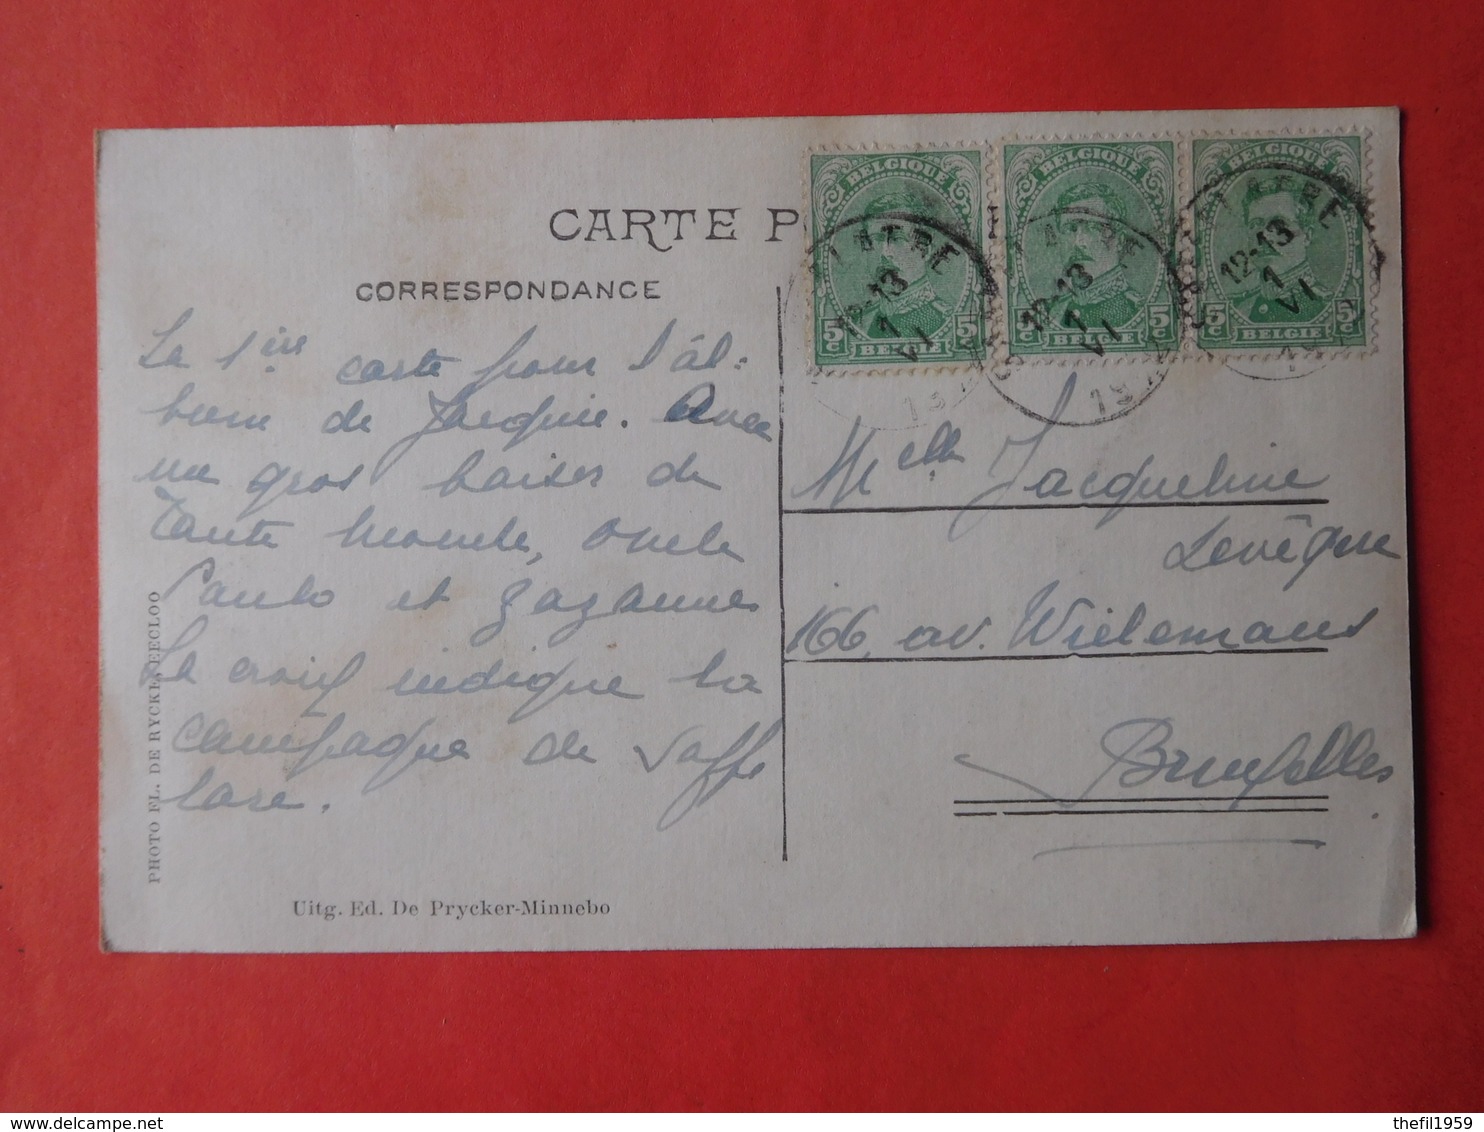 CARTE P
CORRESPONDANCE
La 1ière carte pour l'al-
bum de Jacquie. Avec
un gros baiser de
Tante Monette, Oncle
Paulo et Zazanne
La croix indique la
campagne de Saffe
lare.
PHOTO FL. DE RYCKE, EECLOO
Uitg. Ed. De Prycker-Minnebo
BELGIQUE
5c 5c
BELGIE
BELGIQUE
5c 5c
BELGIE
5c 5c
BELGIE
12-13
1
VI
19
12-13
1
VI
19
12-13
1
VI
Melle Jacqueline
Levêque
166, av. Wielemans
Bruxelles
delcampe.net
thefil1959